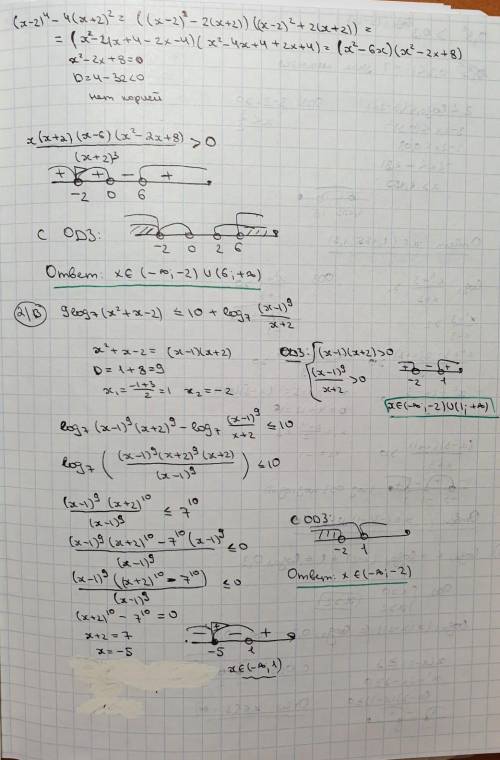 (x-2)⁴ - 4(x+2)² = ((x-2)² - 2(x+2)) ((x-2)² + 2(x+2)) =
= (x² - 4x + 4 - 2x - 4) (x² - 4x + 4 + 2x + 4) = (x² - 6x)(x² - 2x + 8)
x² - 2x + 8 = 0
D = 4 - 32 < 0
нет корней
x(x+2)(x-6)(x²-2x+8) / (x+2)³ > 0
+ + - +
-2 0 6
С ОДЗ:
-2 0 2 6
Ответ: x∈(-∞; -2) ∪ (6; +∞)
2/В 9log₇(x²+x-2) ≤ 10 + log₇ (x-1)⁹/(x+2)
x² + x - 2 = (x-1)(x+2)
D = 1 + 8 = 9
x₁ = (-1+3)/2 = 1 x₂ = -2
ОДЗ: { (x-1)(x+2) > 0
(x-1)⁹/(x+2) > 0
+ - +
-2 1
x∈(-∞; -2) ∪ (1; +∞)
log₇(x-1)⁹(x+2)⁹ - log₇ (x-1)⁹/(x+2) ≤ 10
log₇ ( (x-1)⁹(x+2)⁹(x+2) / (x-1)⁹ ) ≤ 10
(x-1)⁹(x+2)¹⁰ / (x-1)⁹ ≤ 7¹⁰
(x-1)⁹(x+2)¹⁰ - 7¹⁰(x-1)⁹ / (x-1)⁹ ≤ 0
(x-1)⁹((x+2)¹⁰ - 7¹⁰) / (x-1)⁹ ≤ 0
(x+2)¹⁰ - 7¹⁰ = 0
x+2 = 7
x = -5
- + - +
-5 1
x∈(-∞, 1)
С ОДЗ:
-2 1
Ответ: x∈(-∞; -2)